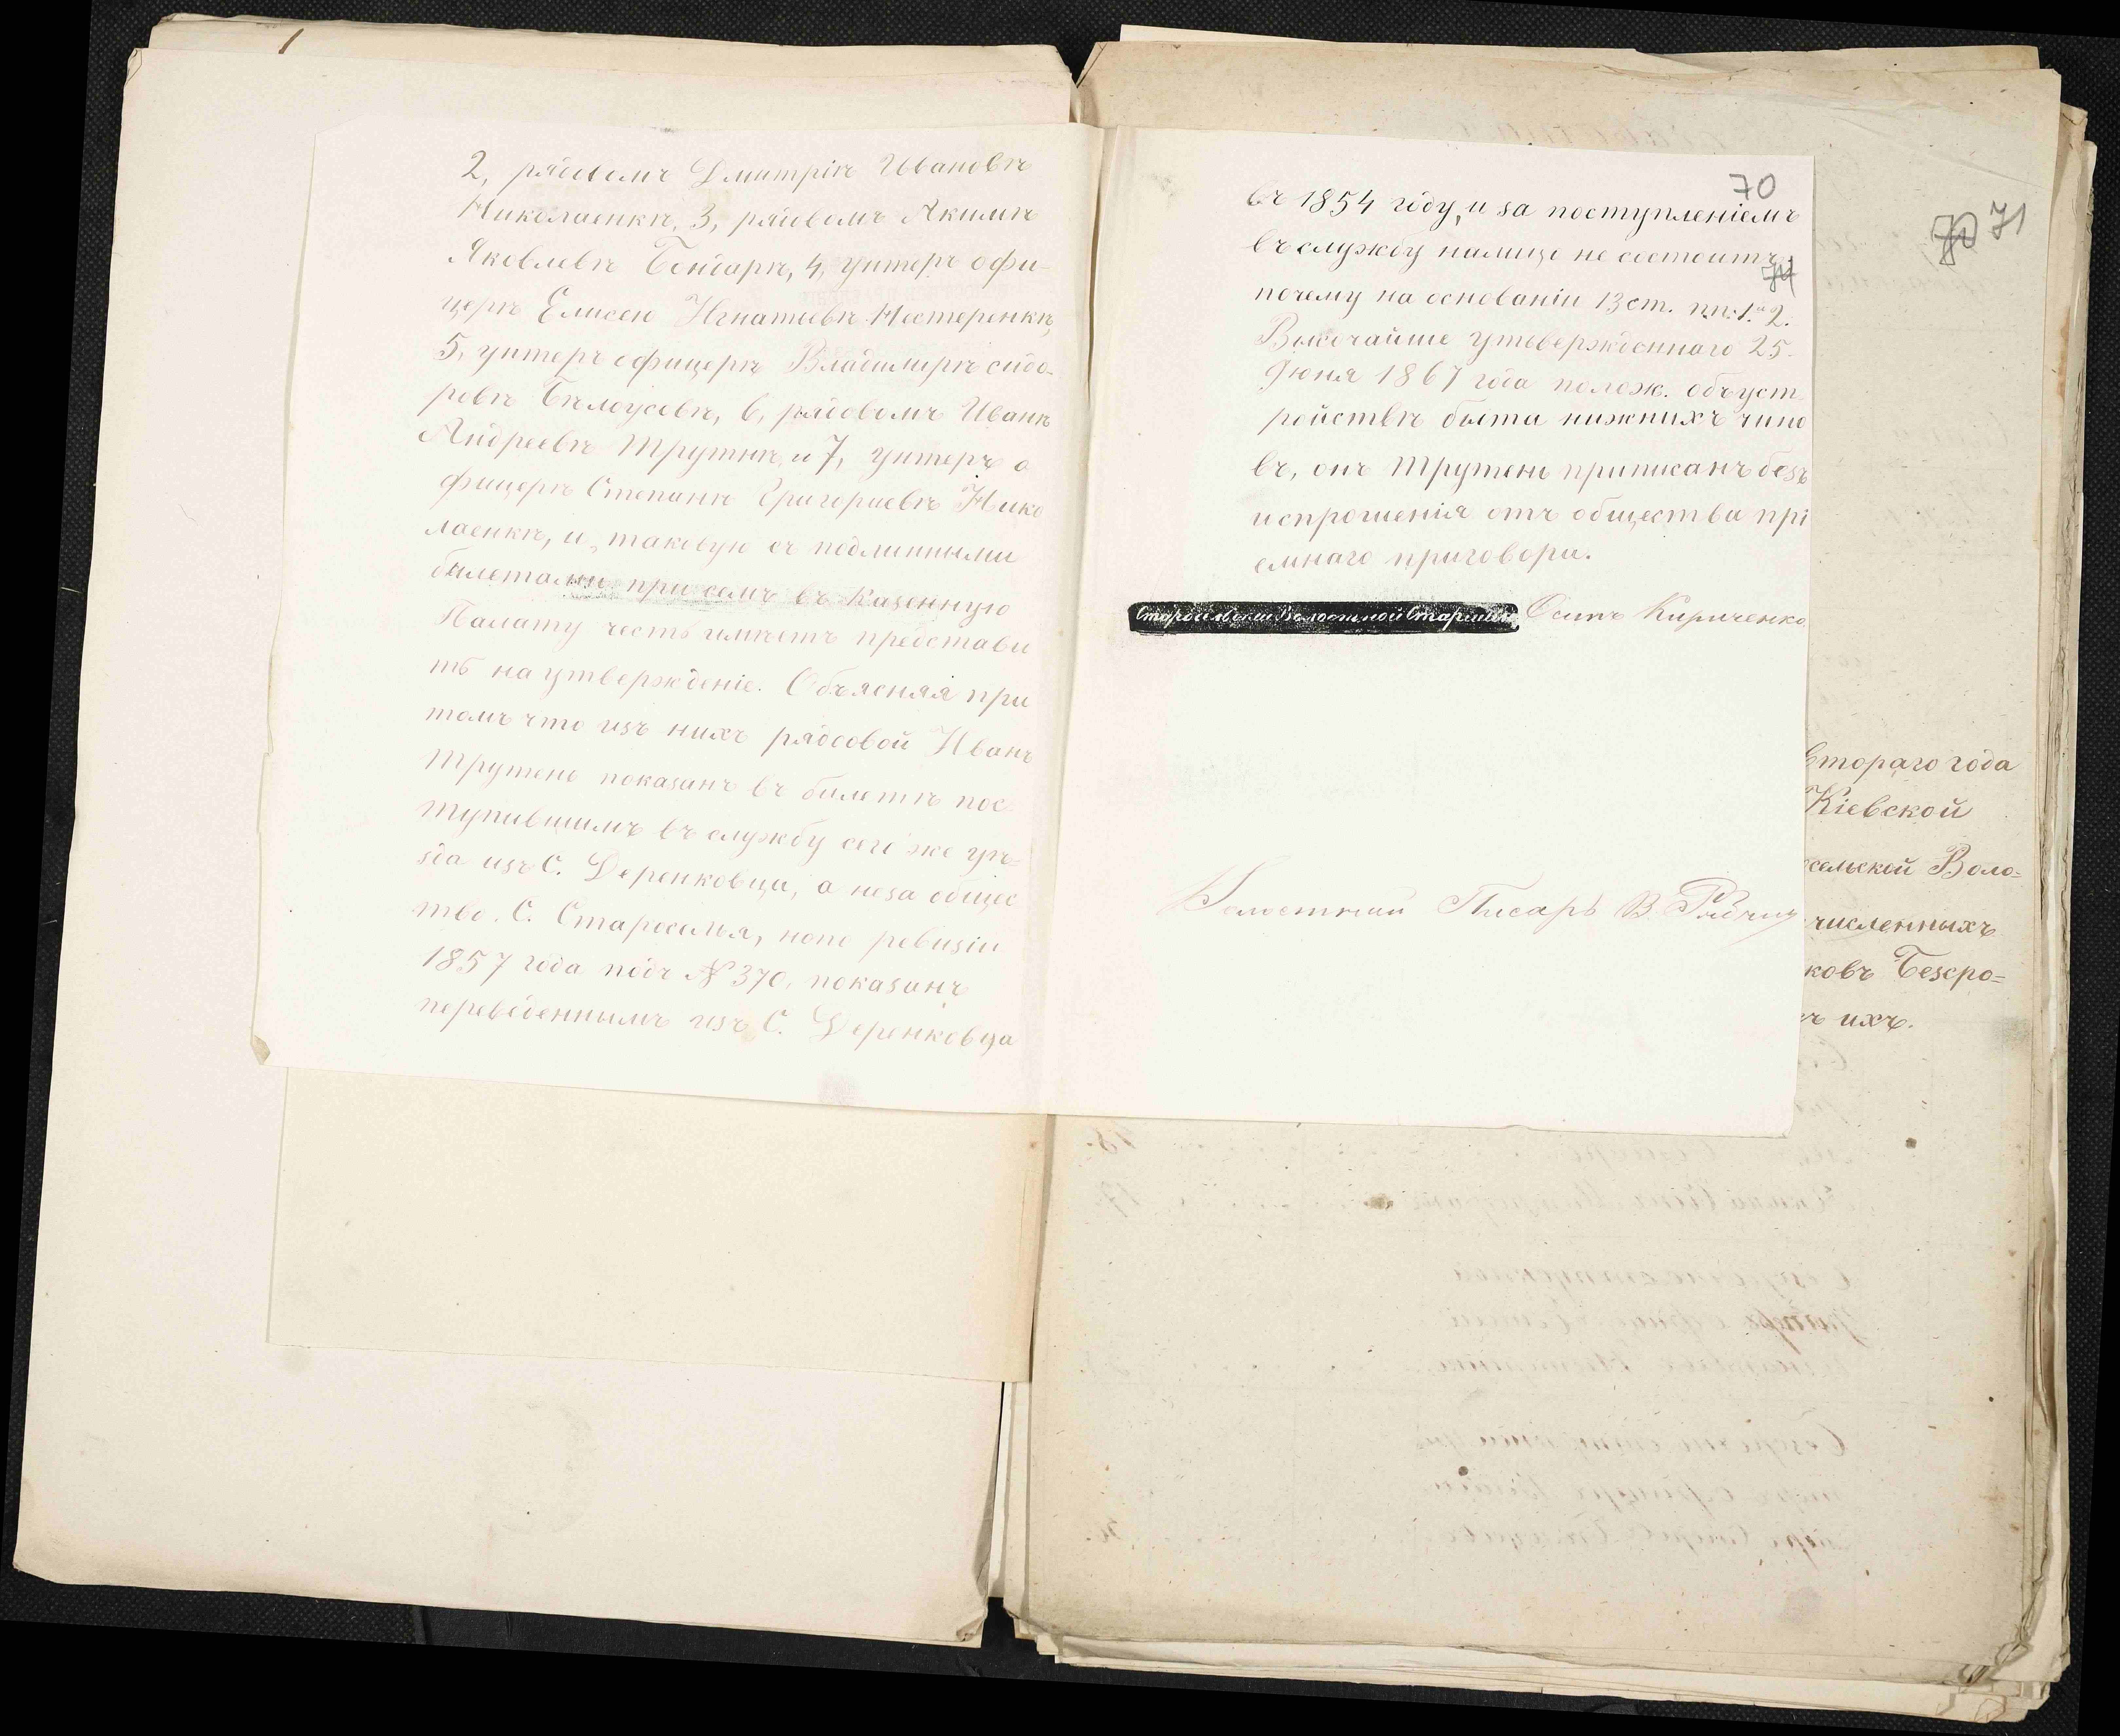 2, рядовомъ Дмитріѣ Ивановѣ
Николаенкѣ, 3, рядовомъ Акимѣ
Яковлевѣ Бондарѣ, 4, унтеръ офи-
церѣ Елисеѣ Игнатіевѣ Нестеренкѣ,
5, унтеръ офицерѣ Владимирѣ Сидо-
ровѣ Бѣлоусовѣ, 6, рядовомъ Иванѣ
Андреевѣ Трутнѣ, и 7, унтеръ о
фицерѣ Степанѣ Григориевѣ Нико
лаенкѣ, и таковую съ подлинными
билетами при семъ въ Казенную
Палату честь имѣетъ представи
ть на утвержденіе. Объясняя при
томъ что изъ нихъ рядовой Иванъ
Трутень показанъ въ билетѣ пос
тупившимъ въ службу сего же уѣ-
зда изъ С. Деренковца, а неза общес
тво. С. Староселья, нопо ревизіи
1857 года подъ № 370, показанъ
переведеннымъ изъ С. Деренковца
70
въ 1854 году, и за поступленіемъ
въ службу налицо не состоитъ,
почему на основаніи 13 ст. пп. 1. и 2.
Высочайше утвержденнаго 25.
Іюня 1867 года полож. объуст
ройствѣ быта нижнихъ чино
въ, онъ Трутень приписанъ безъ
испрошенія отъ общества прі
емнаго приговора.
Старосельский Волостной Старшина Осипъ Кириченко
Волостный Писарь В.
70 71
втораго года
Кіевской
сельской Воло=
численныхъ
ковъ Безсро=
ихъ.